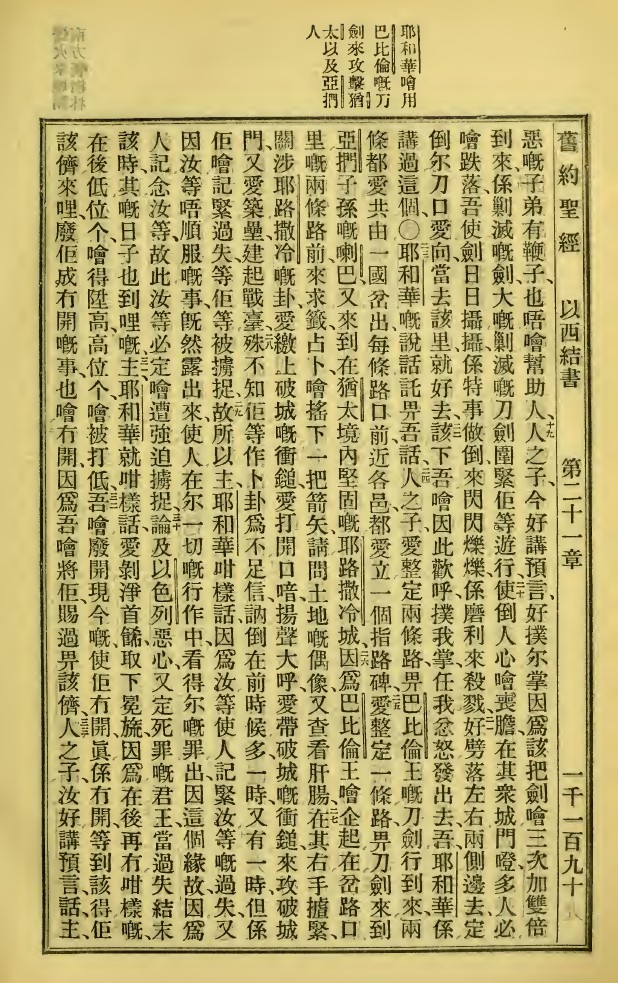 耶和華噲用
巴比倫嘅刀
劍來攻擊猶
太以及亞捫
人
舊約聖經 以西結書 第二十一章 一千一百九十
惡嘅子弟有鞭子、也唔噲幫助人、十九人之子、今好講預言、好撲尔掌、因爲該把劍噲三次加雙倍
到來、係剿滅嘅劍、大嘅剿滅嘅刀劍圍緊佢等遊行、二十使倒人心噲喪膽、在其衆城門噔多人必
噲跌落、吾使劍日日攝攝、係特事做倒來閃閃爍爍、係磨利來殺戮、二一好劈落左右兩側邊去、定
倒尔刀口愛向當去該里、就好去該下、二二吾噲因此歡呼撲我掌、任我忿怒發出去、吾耶和華係
講過這個、〇二三耶和華嘅說話託畀吾話、二四人之子、愛整定兩條路、畀巴比倫王嘅刀劍行到來、兩
條都愛共由一國岔出、每條路口前近各邑都愛立一個指路碑、二五愛整定一條路、畀刀劍來到
亞捫子孫嘅喇巴、又來到在猶太境內堅固嘅耶路撒冷城、二六因爲巴比倫王噲企起在岔路口
里嘅兩條路前、來求籤占卜、噲搖下一把箭矢、請問土地嘅偶像、又查看肝腸、二七在其右手揸緊
關涉耶路撒冷嘅卦、愛繳上破城嘅衝鎚、愛打開口喑揚聲大呼、愛帶破城嘅衝鎚來攻破城
門、又愛築壘建起戰臺、二八殊不知佢等作卜卦爲不足信、訥倒在前時候多一時又有一時、但係
佢噲記緊過失、等佢等被擄捉、二九故所以主耶和華咁樣話、因爲汝等使人記緊汝等嘅過失、又
因汝等唔順服嘅事旣然露出來、使人在尔一切嘅行作中看得尔嘅罪出、因這個緣故、因爲
人記念汝等、故此汝等必定噲遭強迫擄捉、三十論及以色列惡心又定死罪嘅君王、當過失結末
該時、其嘅日子也到哩嘅、三一主耶和華就咁樣話、愛剝淨首飾、取下冕旒、因爲在後再冇咁樣嘅、
在後低位个噲得陞高、高位个噲被打低、三二吾噲廢開現今嘅、使佢冇開、眞係冇開、等到該得佢
該儕來哩、廢佢成冇開嘅事、也噲冇開、因爲吾噲將佢賜過畀該儕、三三人之子、汝好講預言話、主